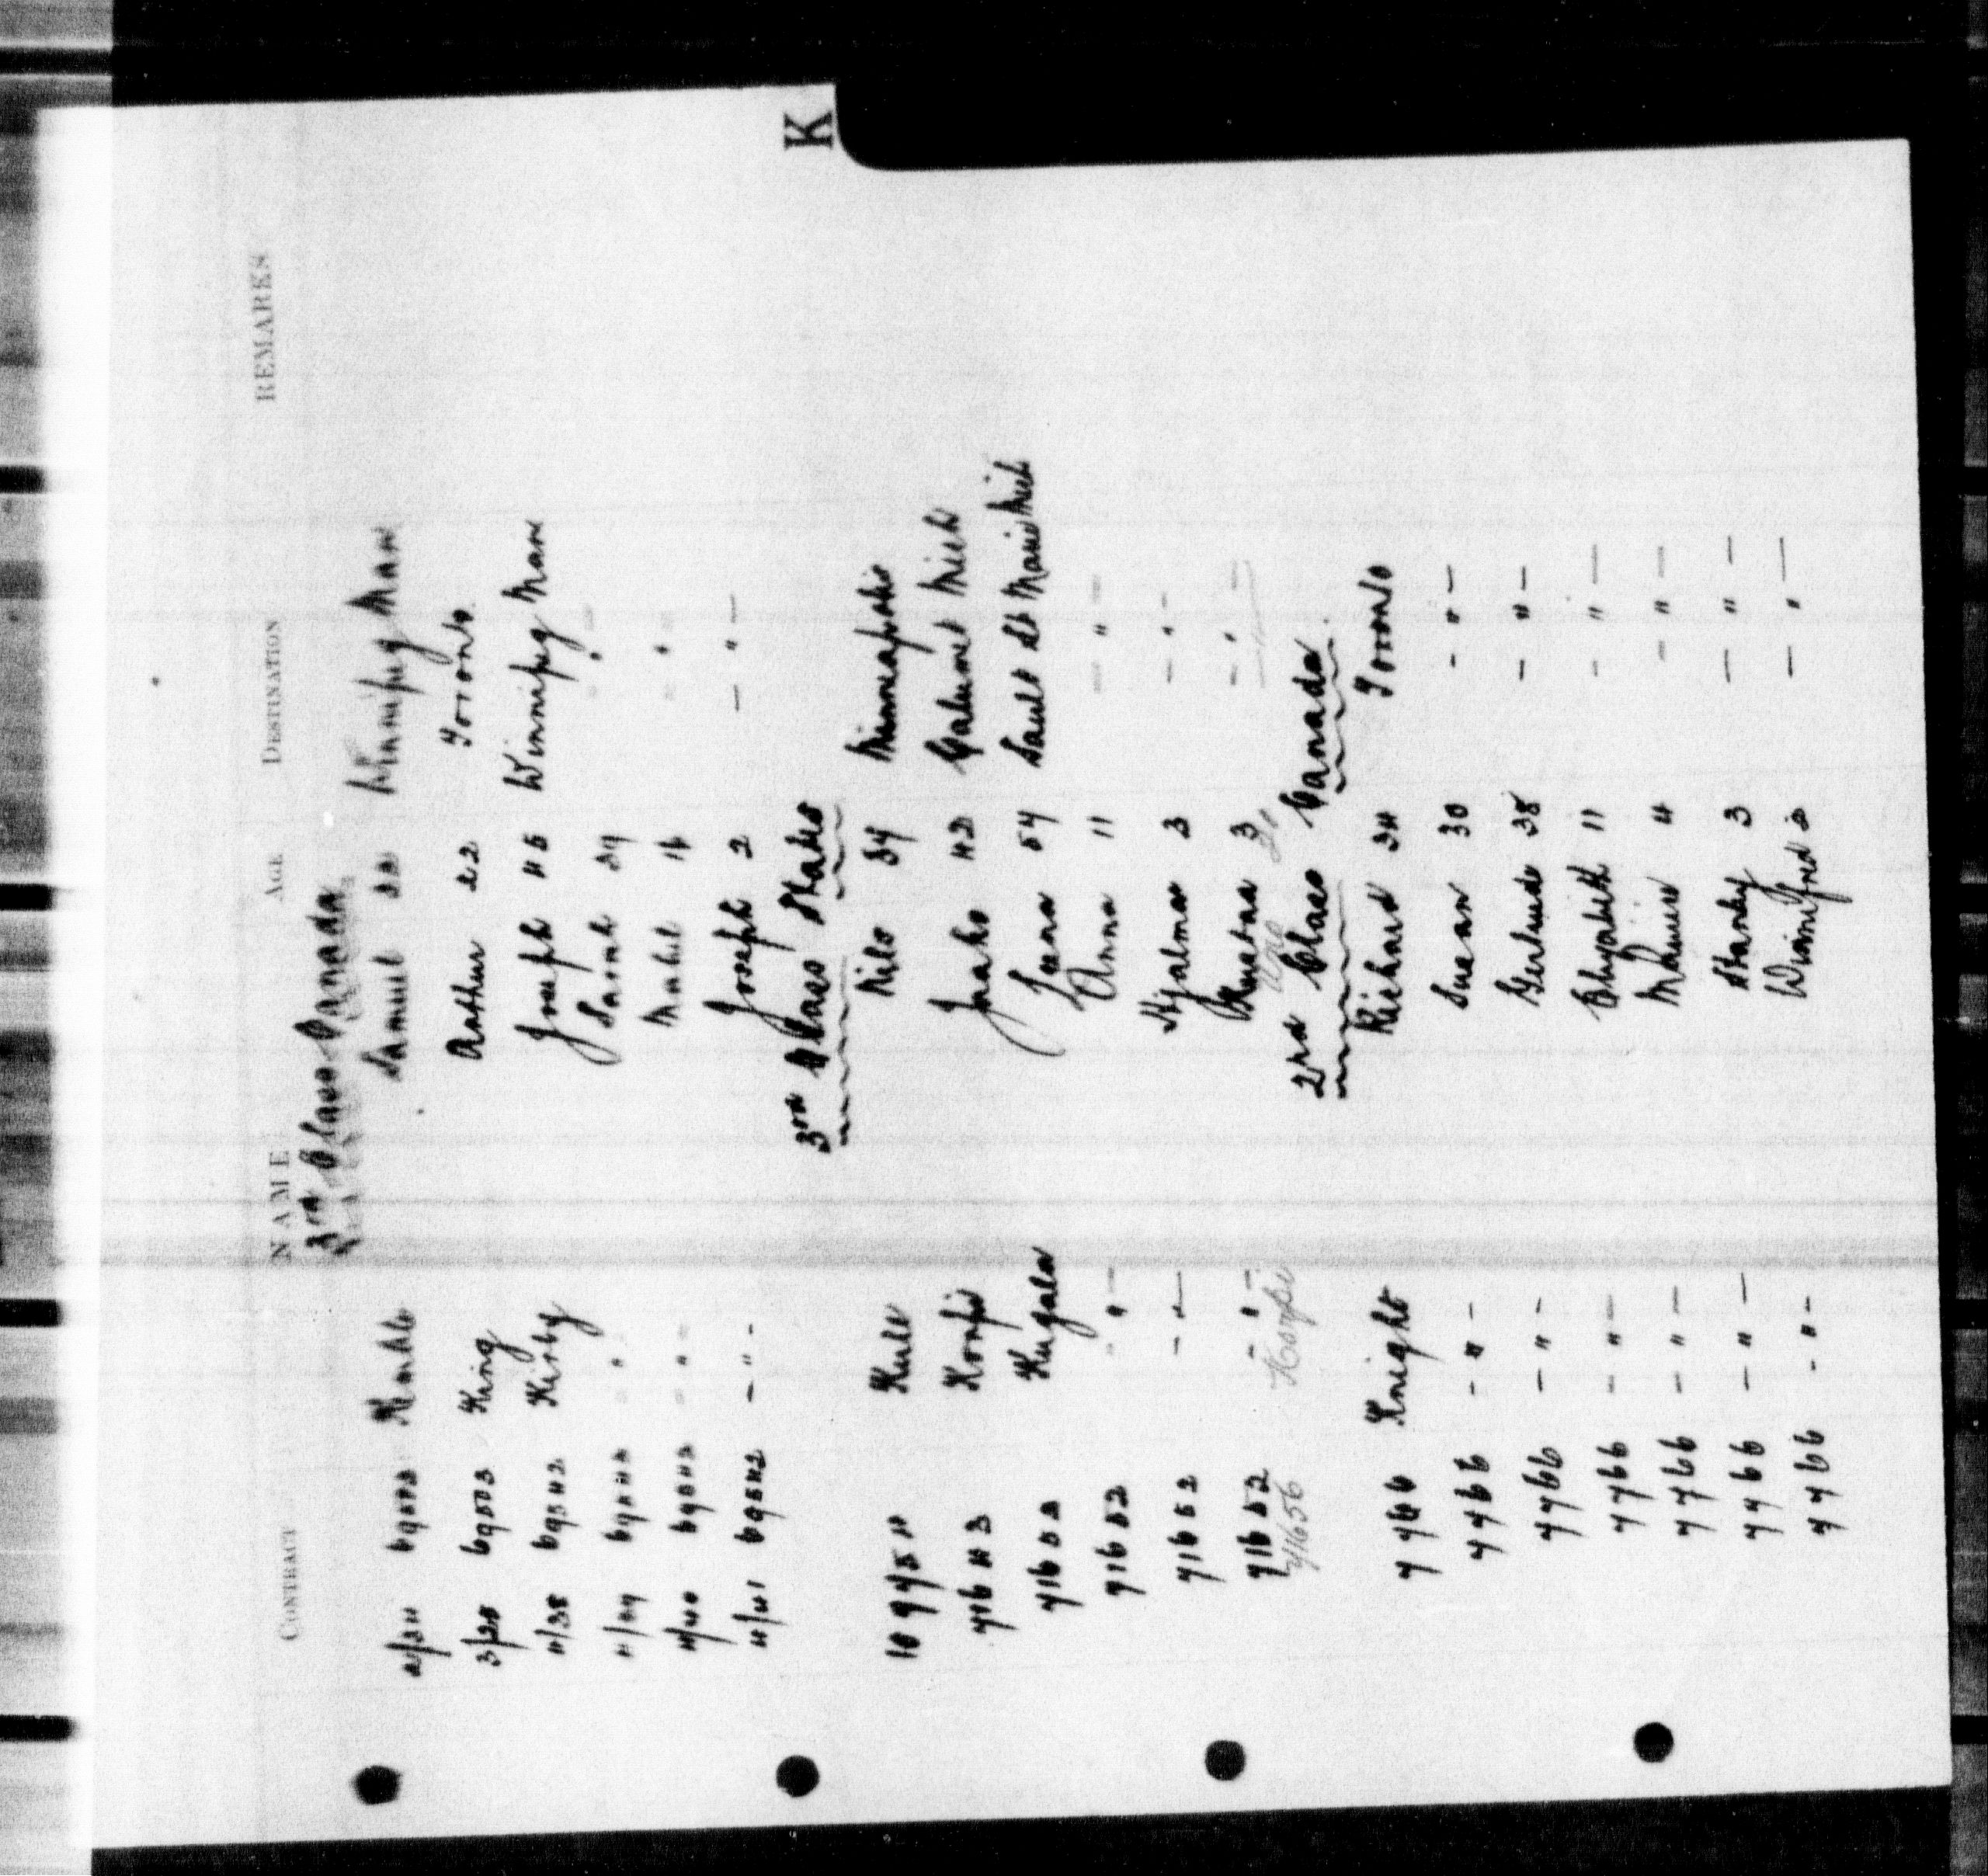 K
CONTRACT NAME AGE DESTINATION REMARKS
3rd Class Canada
2/34 69573 Samuel 22 Winnipeg Man
3/28 69503 King Arthur 22 Toronto
4/38 69542 Kirby Joseph 45 Winnipeg Man
4/39 69542 " Sarah 39 "
4/40 69542 " Mabel 16 "
4/41 69542 - " - Joseph 2 - " -
3rd Class States
Nilo Minneapolis
71643 Jaako 42 Calumet Mich
71652 Kugala 54 Sault St Marie Mich
71652 " Anna 11 "
71652 - " - Hjalmar 3 - " -
71652 - " - 3 - " -
71656
2nd Class Canada
7766 Knight Richard 34 Toronto
7766 - " - Susan 30 - " -
7766 - " - Gertrude 38 - " -
7766 - " - 11 - " -
7766 - " - 4 - " -
7766 - " - Stanley 3 - " -
7766 - " - Winifred 2 - " -